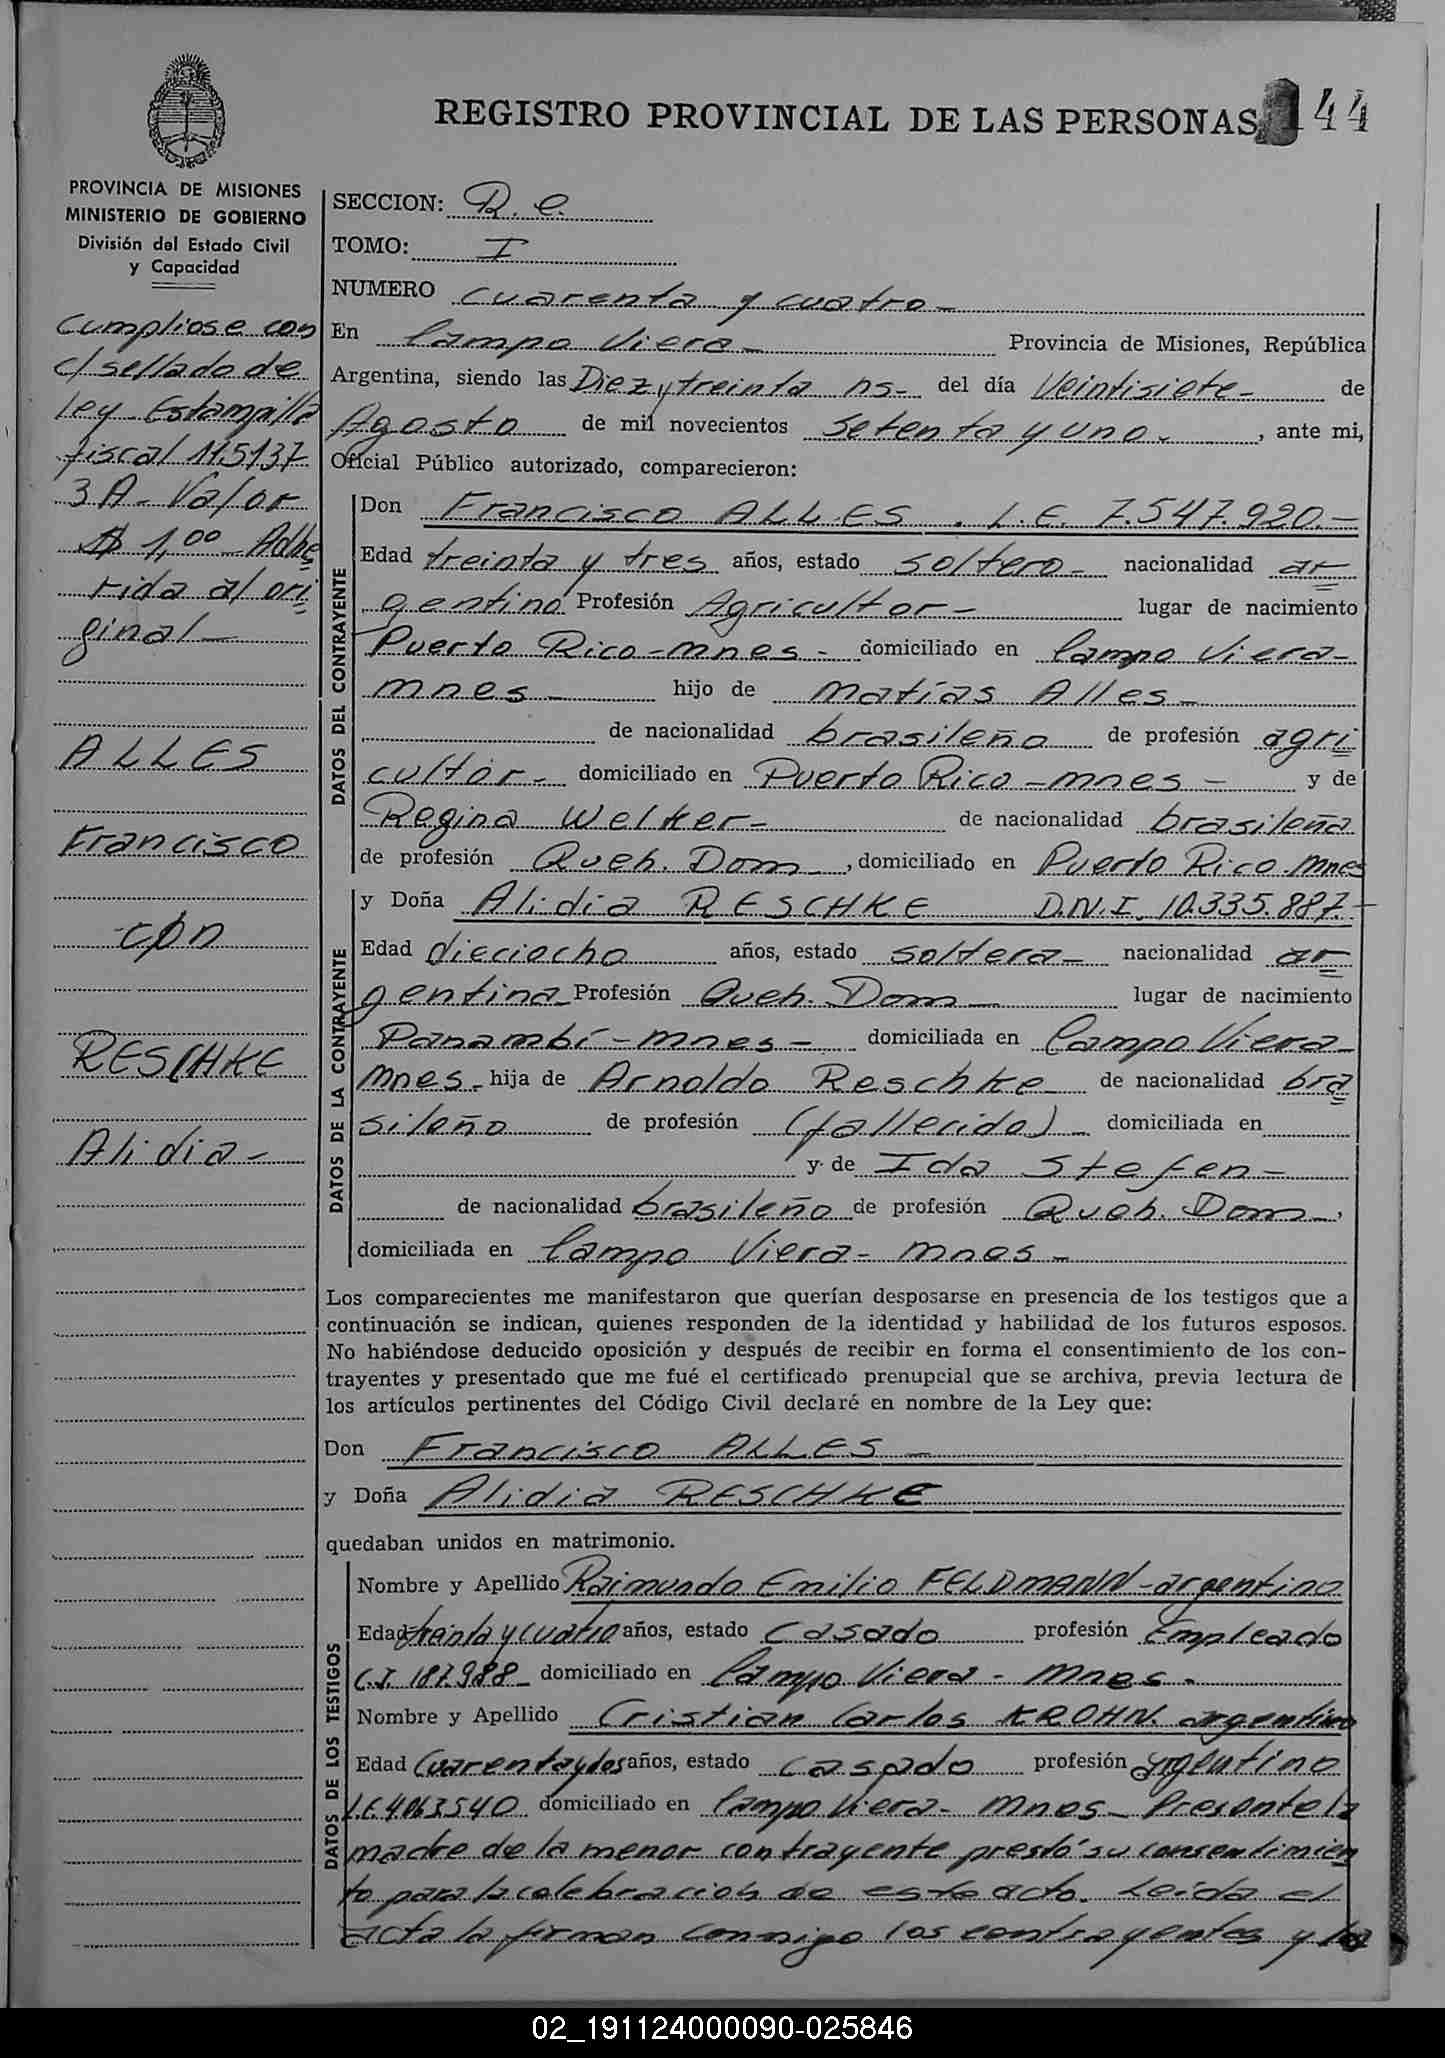 REGISTRO PROVINCIAL DE LAS PERSONAS 44
PROVINCIA DE MISIONES
MINISTERIO DE GOBIERNO
División del Estado Civil
y Capacidad
Cumpliose con
c/ sellado de
ley Estampilla
fiscal 115137
3 A - Valor
$ 1,00 Adhe
rida al ori
ginal -
ALLES
Francisco
con
RESCHKE
Alidia -
SECCION: R. C.
TOMO: I
NUMERO cuarenta y cuatro -
En Campo Viera - Provincia de Misiones, República
Argentina, siendo las Diez y treinta hs - del día Veintisiete - de
Agosto de mil novecientos setenta y uno. , ante mi,
Oficial Público autorizado, comparecieron:
DATOS DEL CONTRAYENTE
Don Francisco ALLES . L.E. 7.547.920. -
Edad treinta y tres años, estado soltero - nacionalidad ar
gentino Profesión Agricultor - lugar de nacimiento
Puerto Rico - Mnes - domiciliado en Campo Viera -
Mnes - hijo de Matías Alles -
de nacionalidad brasileño de profesión agri
cultor - domiciliado en Puerto Rico - Mnes - y de
Regina Welker - de nacionalidad brasileña
de profesión Queh. Dom , domiciliado en Puerto Rico. Mnes
DATOS DE LA CONTRAYENTE
y Doña Alidia RESCHKE D.N.I. 10.335.887. -
Edad dieciocho años, estado soltera - nacionalidad ar
gentina Profesión Queh. Dom - lugar de nacimiento
Panambí - Mnes - domiciliada en Campo Viera -
Mnes - hija de Arnoldo Reschke de nacionalidad bra
sileño de profesión (fallecido) - domiciliada en
y de Ida Stefen -
de nacionalidad brasileño de profesión Queh. Dom - ,
domiciliada en Campo Viera - Mnes -
Los comparecientes me manifestaron que querían desposarse en presencia de los testigos que a
continuación se indican, quienes responden de la identidad y habilidad de los futuros esposos.
No habiéndose deducido oposición y después de recibir en forma el consentimiento de los con-
trayentes y presentado que me fué el certificado prenupcial que se archiva, previa lectura de
los artículos pertinentes del Código Civil declaré en nombre de la Ley que:
Don Francisco ALLES -
y Doña Alidia RESCHKE
quedaban unidos en matrimonio.
DATOS DE LOS TESTIGOS
Nombre y Apellido Raimundo Emilio FELDMANN - argentino
Edad treinta y cuatro años, estado Casado profesión Empleado
C.I. 187.988 - domiciliado en Campo Viera - Mnes -
Nombre y Apellido Cristian Carlos KROHN. argentino
Edad Cuarenta y dos años, estado casado profesión
L.E. 4.063.540 domiciliado en Campo Viera - Mnes - Presente la
madre de la menor contrayente prestó su consentimien
to para la celebración de este acto. Leida el
acta la firman conmigo los contrayentes y los
02_191124000090-025846